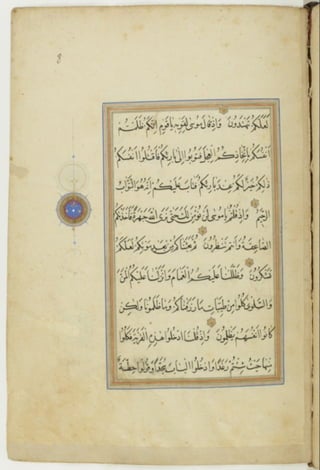 8
لعلكم تهتدون واذ قال موسى لقومه يا قوم انكم ظلمتم
انفسكم باتخاذكم العجل فتوبوا الى بارئكم فاقتلوا انفسكم
ذلكم خير لكم عند بارئكم فتاب عليكم انه هو التواب
الرحيم واذ قلتم يا موسى لن نؤمن لك حتى نرى الله جهرة فاخذتكم
الصاعقة وانتم تنظرون ثم بعثناكم من بعد موتكم لعلكم
تشكرون وظللنا عليكم الغمام وانزلنا عليكم المن
والسلوى كلوا من طيبات ما رزقناكم وما ظلمونا ولكن
كانوا انفسهم يظلمون واذ قلنا ادخلوا هذه القرية فكلوا
منها حيث شئتم رغدا وادخلوا الباب سجدا وقولوا حطة